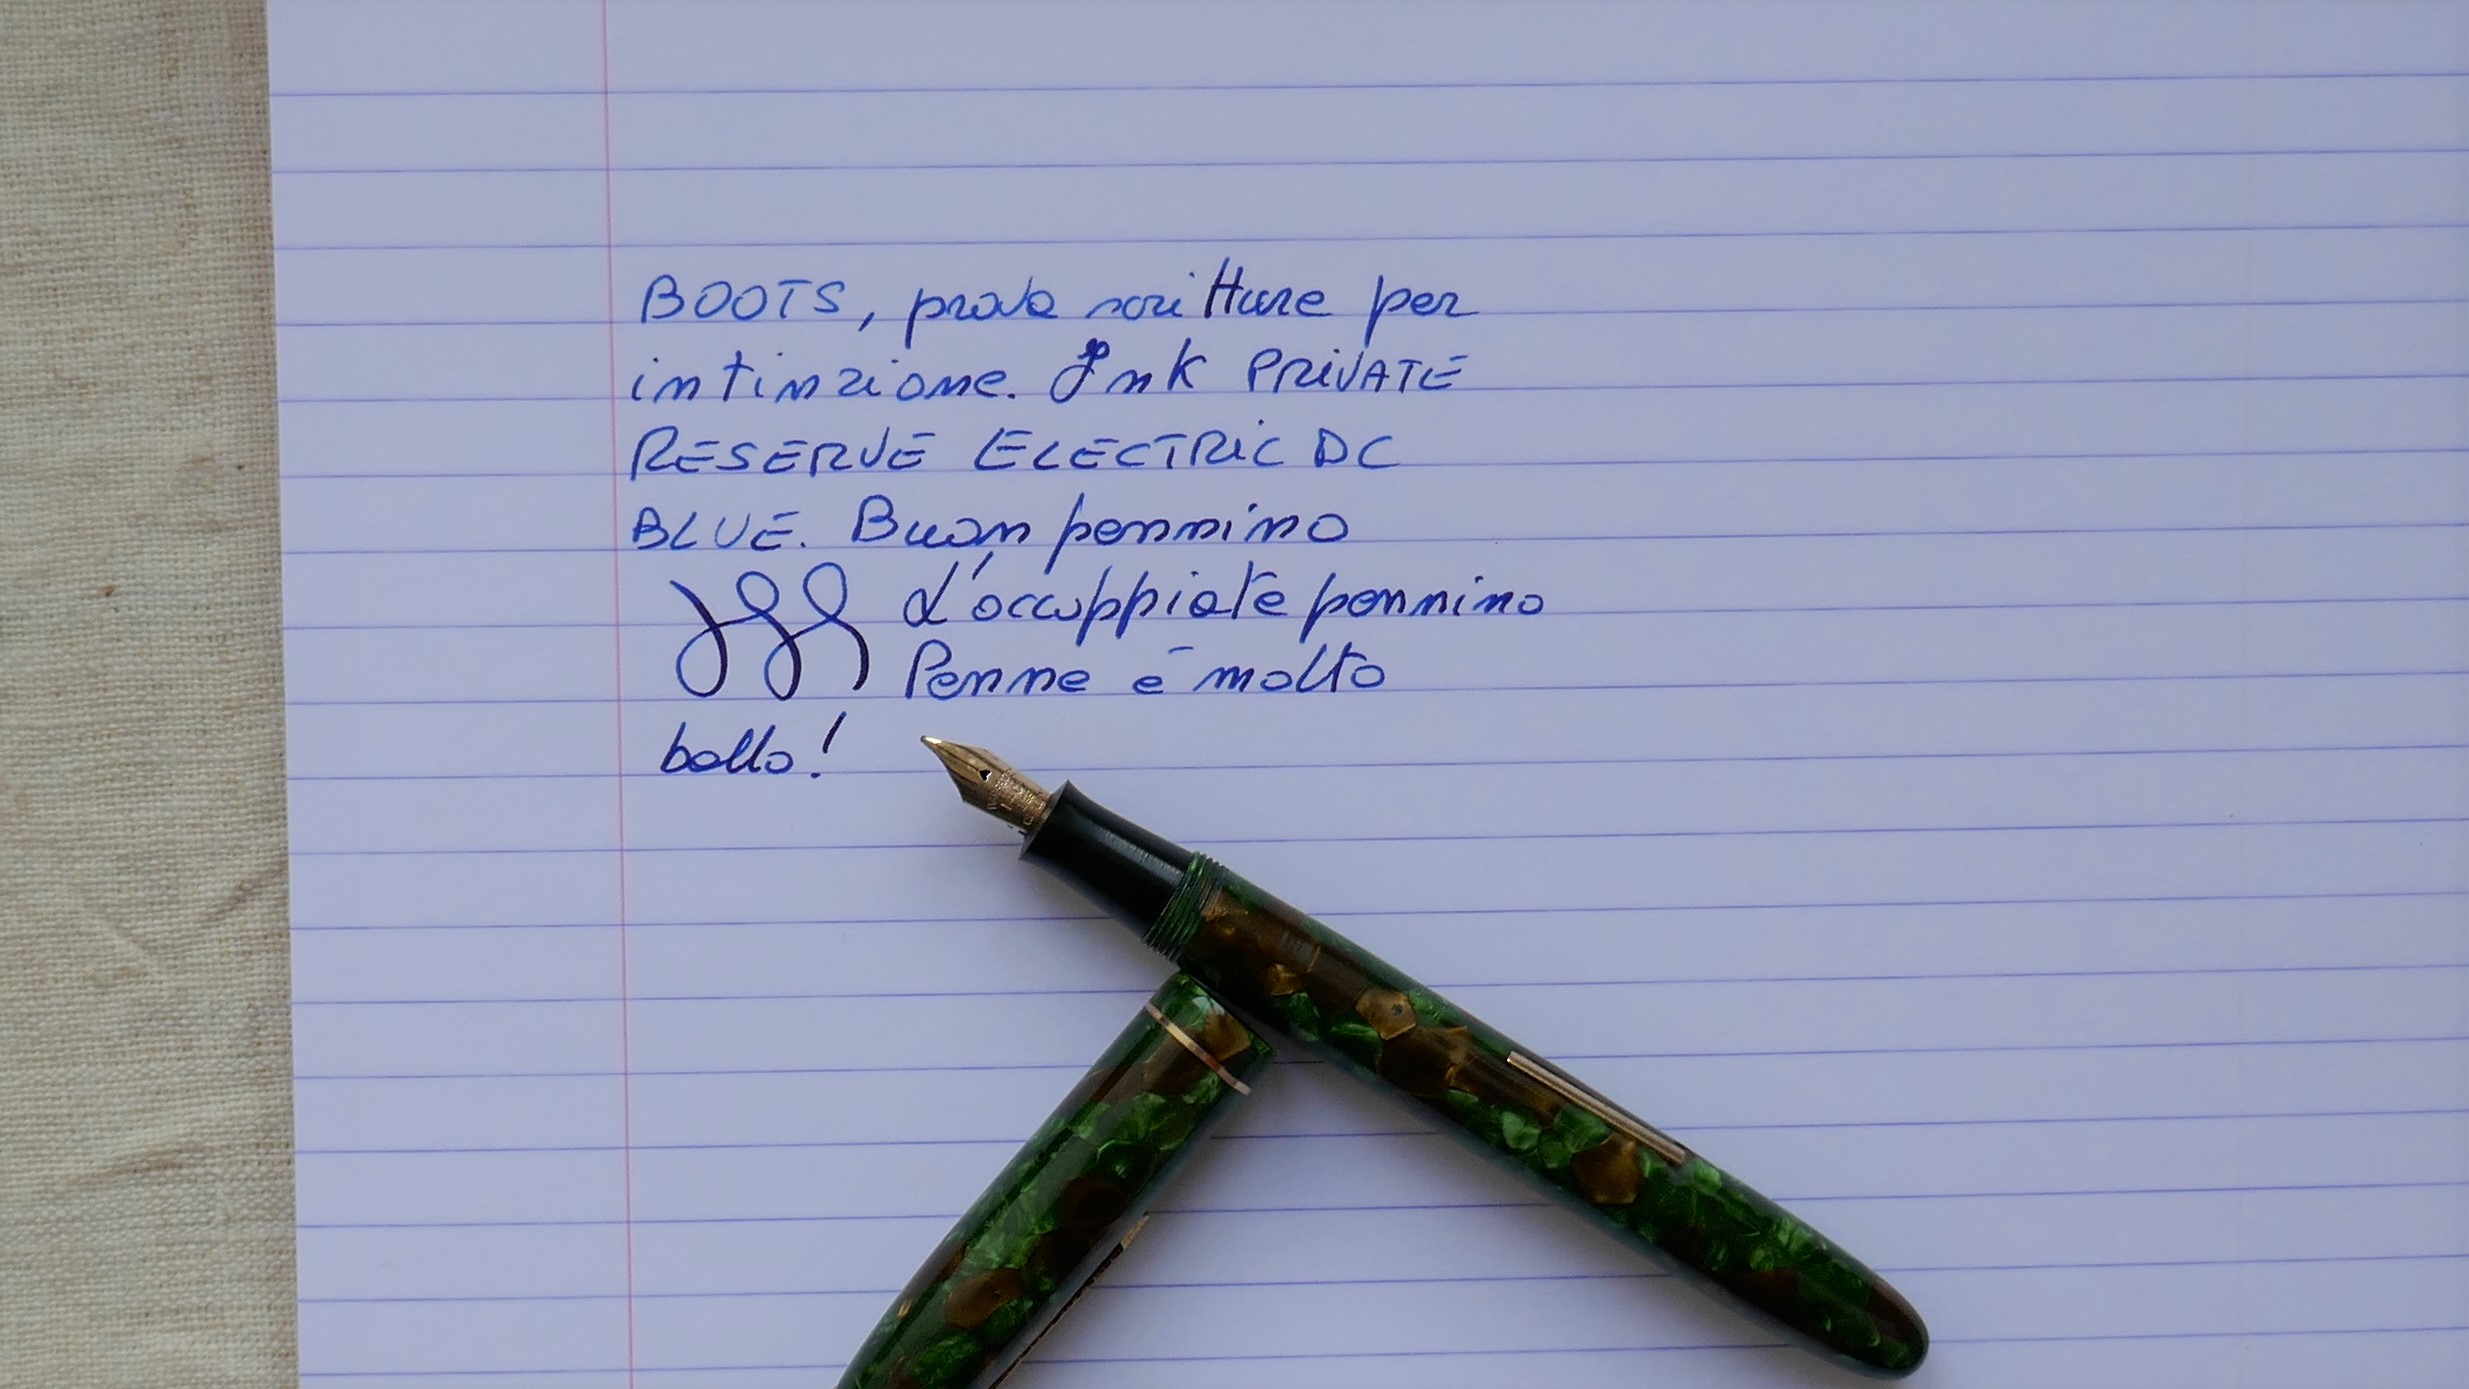 BOOTS, prova scritture per
intinzione. Ink PRIVATE
RESERVE ELECTRIC DC
BLUE. Buon pennino
L'accoppiata pennino
Penna è molto
bello!